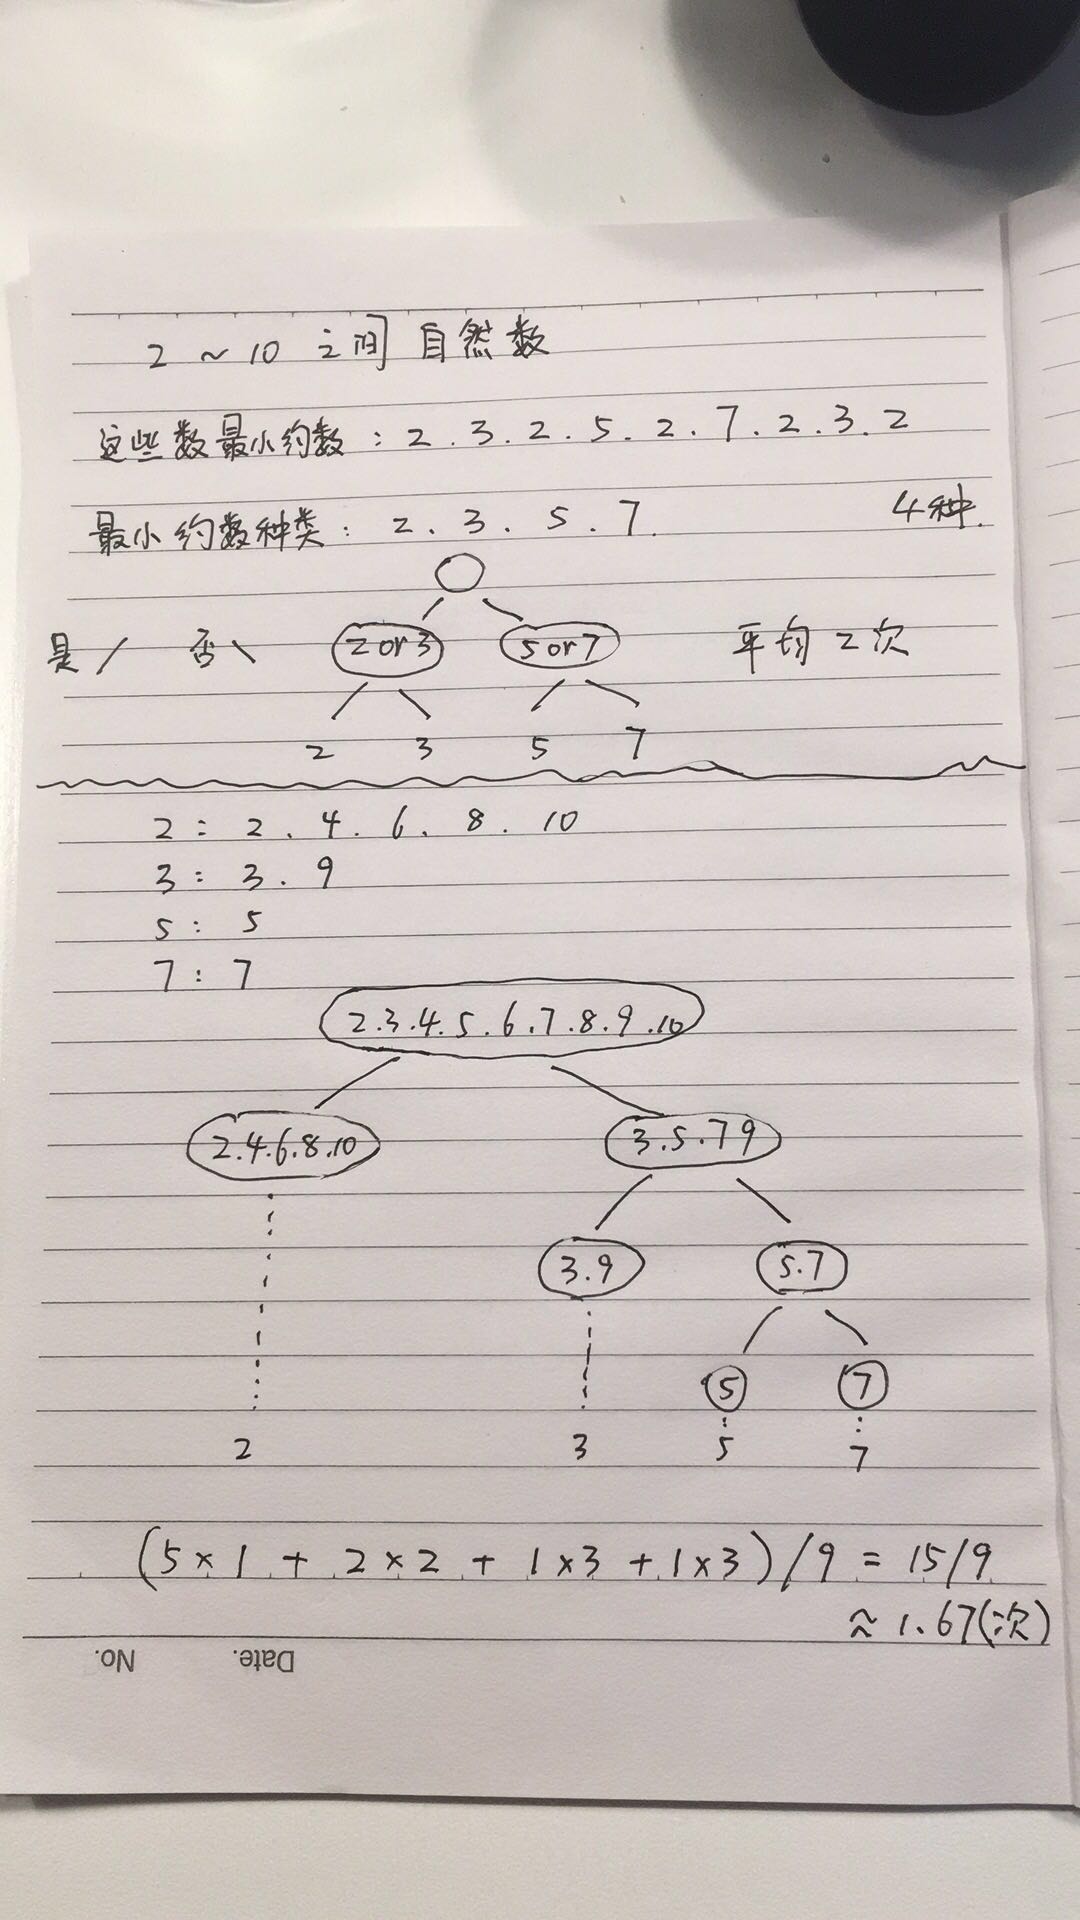 2 ~ 10 之间 自然数
这些数最小约数: 2.3.2.5.2.7.2.3.2
最小约数种类: 2.3.5.7. 4种.
是/ 否\ 2 or 3 5 or 7 平均 2 次
2 3 5 7
2: 2.4.6.8.10
3: 3.9
5: 5
7: 7
2.3.4.5.6.7.8.9.10
2.4.6.8.10 3.5.7 9
3.9 5.7
5 7
2 3 5 7
(5×1 + 2×2 + 1×3 + 1×3)/9 = 15/9
≈ 1.67(次)
No. Date.